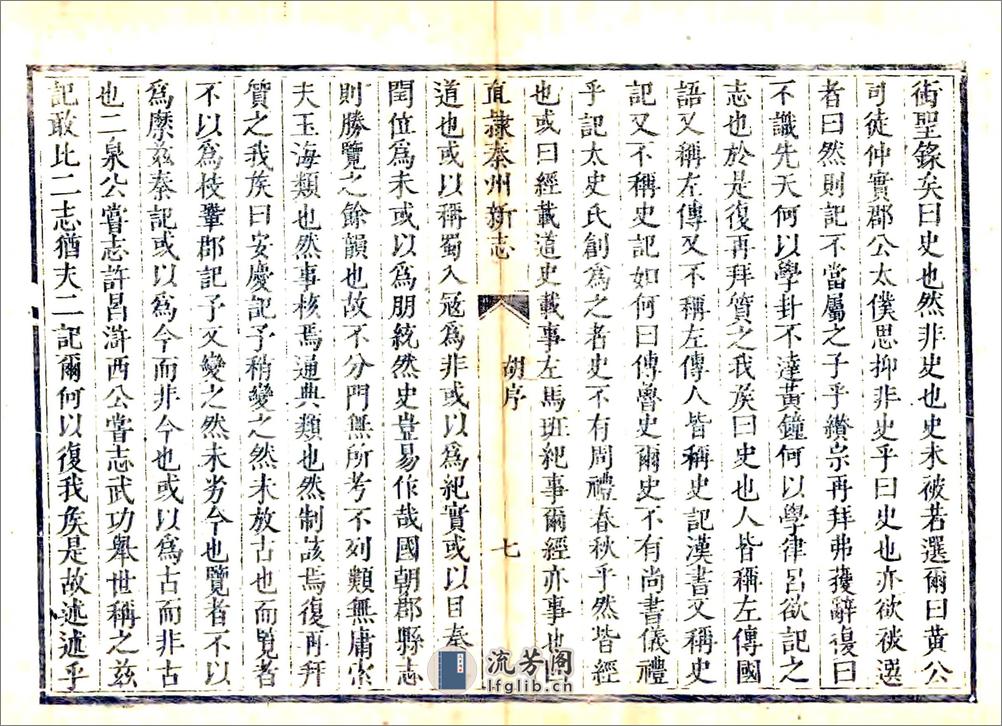 衝聖錄矣曰史也然非史也史未被若選爾曰黃公
司徒仲實郡公太僕思抑非史乎曰史也亦欲被選
者曰然則記不當屬之子乎纘宗再拜弗獲辭復曰
不識先天何以學卦不達黃鐘何以學律呂欲記之
志也於是復再拜質之我侯曰史也人皆稱左傳國
語又稱左傳又不稱左傳人皆稱史記漢書又稱史
記又不稱史記如何曰傳魯史爾史不有尚書儀禮
乎記太史氏創為之者史不有周禮春秋乎然皆經
也或曰經載道史載事左馬班紀事爾經亦事也
直隸秦州新志 胡序 七
道也或以稱蜀入冦為非或以為紀實或以目秦
閏位為未或以為朋統然史豈易作哉國朝郡縣志
則勝覽之餘韻也故不分門無所考不列類無庸索
夫玉海類也然事核焉通典類也然制該焉復再拜
質之我侯曰安慶記予稍變之然未放古也而覽者
不以為枝鞏郡記予又變之然未劣今也覽者不以
為摩茲秦記或以為今而非今也或以為古而非古
也二泉公嘗志許昌滸西公嘗志武功舉世稱之茲
記敢比二志猶夫二記爾何以復我侯是故述述乎
流芳阁
lfglib.cn